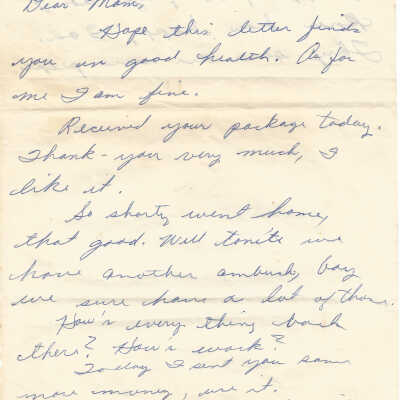 Dear Mom,
Hope this letter finds
you in good health. As for
me I am fine.
Received your package today.
Thank-you very much, I
like it.
So shorty went home,
that good. Well tonite we
have another ambush, boy
we sure have a lot of those.
How's every thing back
there? How's work?
Today I sent you some
more money, use it.